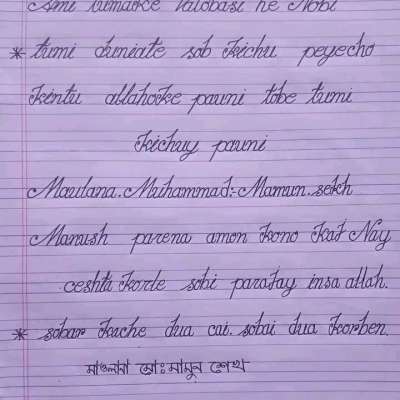 Ami tumake valobasi he Nobi
* tumi duniate sob kichu peyecho
kintu allahoke pauni tobe tumi
kichuy pauni
Maulana. Muhammad:- Mamun. sekh
Manush parena amon kono kaj Nay
ceshta korle sobi parajay insa allah.
* sobar kache dua cai. sobai dua korben.
মাওলানা মোঃ মামুন শেখ